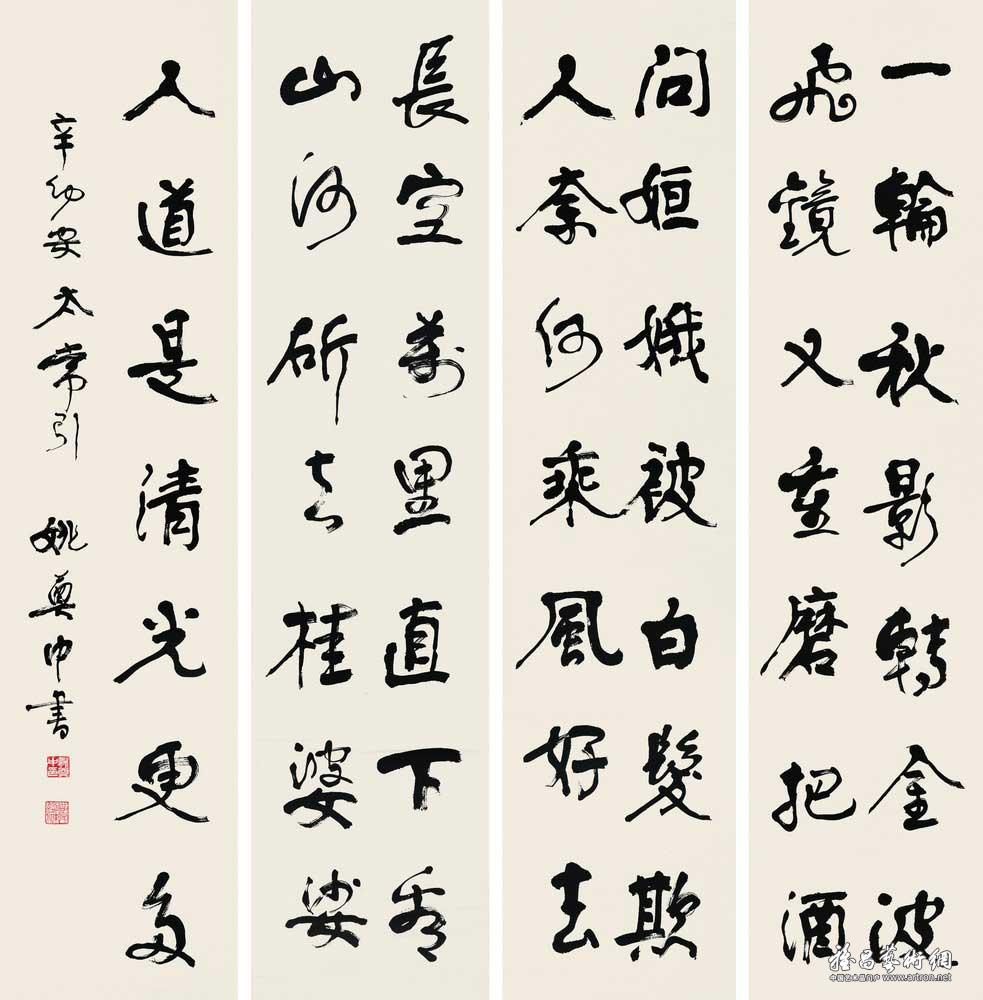 一輪秋影轉金波
飛鏡又重磨把酒
問姮娥被白髮欺
人奈何乘風好去
長空萬里直下看
山河斫去桂婆娑
人道是清光更多
辛幼安太常引 姚奠中書
雅昌藝術網
中国艺术品门户 www.artron.net